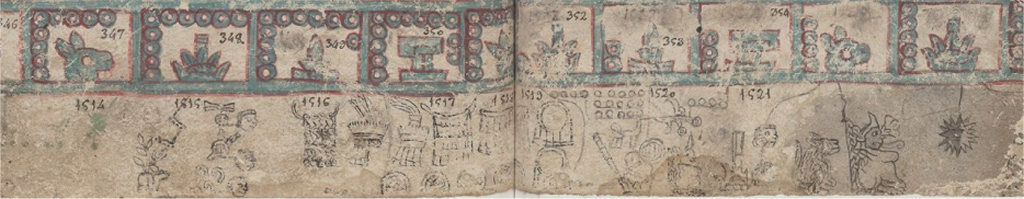 346 347 348 349 350 352 353 354
1514 1515 1516 1517 1518 1519 1520 1521